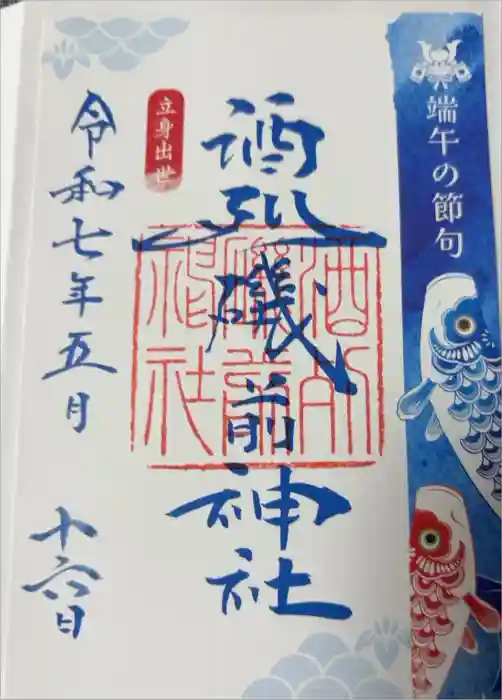 端午の節句
酒列磯前神社
酒列
磯前
神社
立身出世
令和七年五月十六日